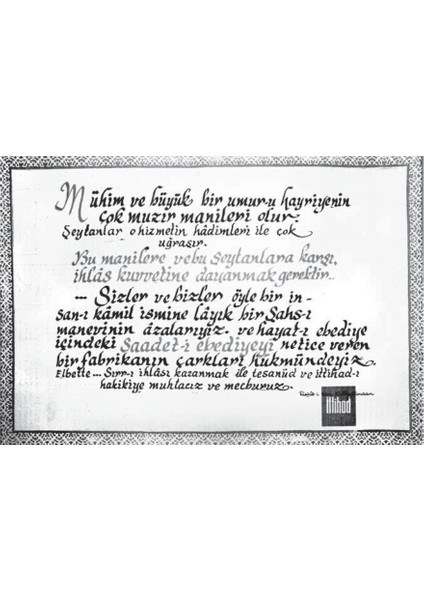 Mühim ve büyük bir umur-u hayriyenin
çok muzır manileri olur.
Şeytanlar o hizmetin hâdimleri ile çok
uğraşır.
Bu manilere ve bu şeytanlara karşı,
ihlâs kuvvetine dayanmak gerektir..
... Sizler ve bizler öyle bir in-
san-ı kâmil ismine lâyık bir şahs-ı
manevinin âzalarıyız. ve hayat-ı ebediye
içindeki saadet-i ebediyeyi netice veren
bir fabrikanın çarkları hükmündeyiz.
Elbette... Sırr-ı ihlâsı kazanmak ile tesanüd ve ittihad-ı
hakikiye muhtacız ve mecburuz.
ittihad